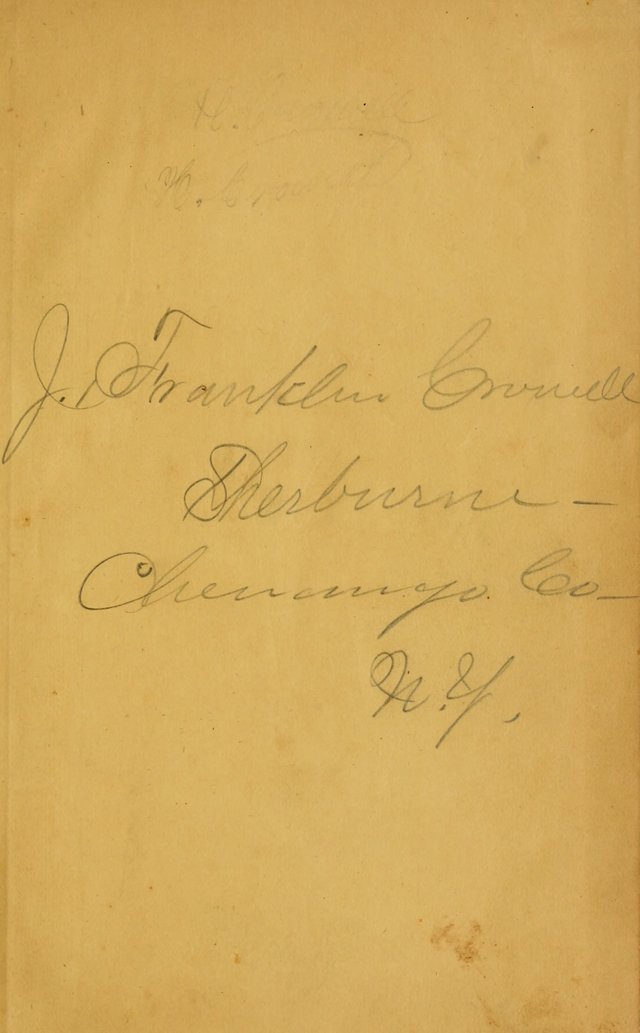 H. Crowell
H. Crowell
J. Franklin Crowell
Sherburne –
Chenango. Co –
N. Y.